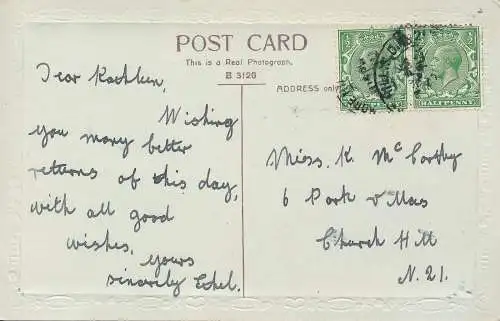 POST CARD
This is a Real Photograph.
B 3126
ADDRESS only
HALFPENNY
Dear Kathleen,
Wishing
you many better
returns of this day,
with all good
wishes,
yours
sincerely Ethel.
Miss. K. Mc Carthy
6 Park Villas
Church Hill
N. 21.